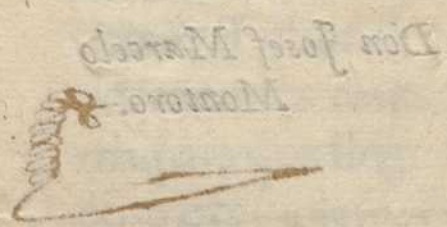 Don Josef Marcelo
Montoro.